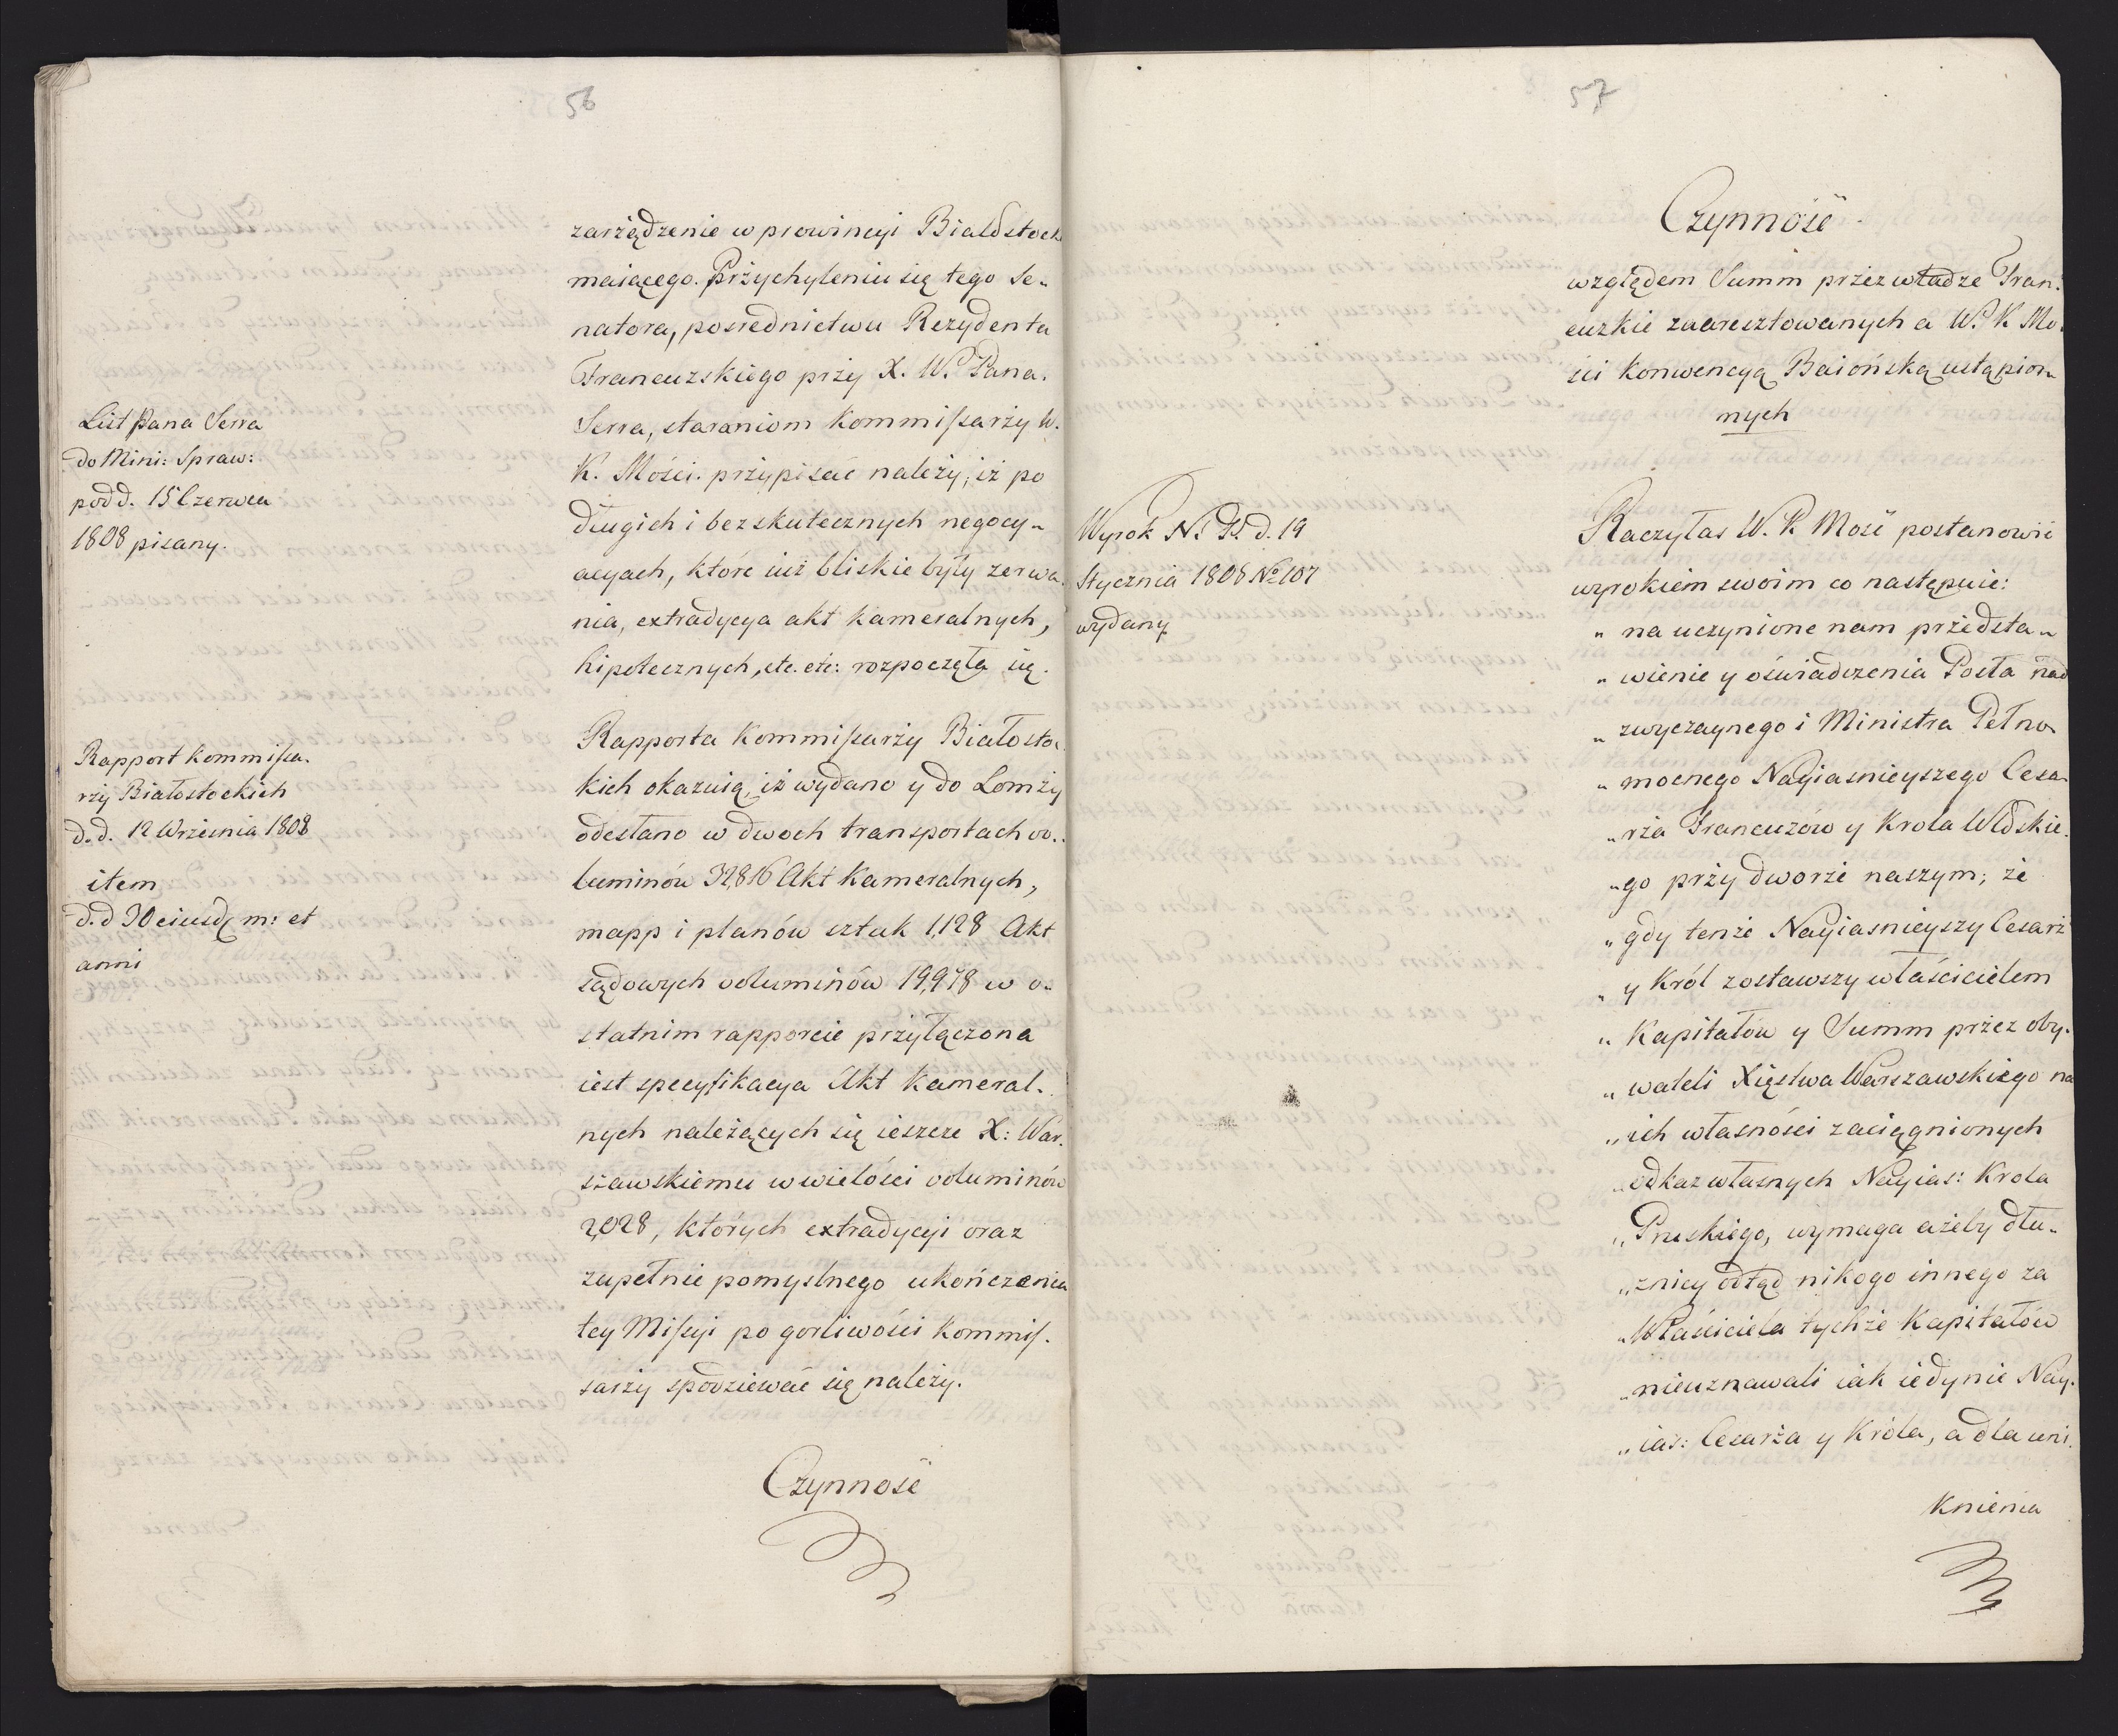 56
zarządzenie w prowincyi Białostock
maiącego. Przychyleniu się tego Se„
natora, posrednictwu Rezydenta
Francuzskiego przy X. W. Pana.
Serra, staraniom Kommissarzy W.
K. Mości. przypisać należy, iż po
długich i bezskutecznych negocy„
acyach, które iuż bliskie były zerwa„
nia, extradycya akt kameralnych,
hipotecznych, etc. etc: rozpoczęła się.
List Pana Serra
do Mini: Spraw:
pod d. 15 Czerwca
1808 pisany.
Rapporta Kommissarzy Białostoc„
kich okazuią, iż wydano y do Lomży
odesłano w dwoch transportach vo„
luminów 32,816 Akt Kameralnych,
mapp i planów sztuk 1,128 Akt
sądowych voluminów 19,978 w o„
statnim rapporcie przyłączona
iest specyfikacya Akt Kameral„
nych należących się ieszcze X: War„
szawskiemu w wielości voluminów
2,028, których extradycyi oraz
zupełnie pomyslnego ukończenia
tey Missyi po gorliwości Kommis„
sarzy spodziewać się należy.
Rapport Kommissa„
rzy Białostockich
d. d. 12 Września 1808
item
d. d 30 eiusdem: et
anni
Czynność
57
Czynność
względem Summ przez władze Fran„
cuzkie zaaresztowanych a W. K Mo„
ści Konwencyą Baiońską ustąpion„
nych
Wyrok N. P. d. 19
Stycznia 1808 No 107
wydany.
Raczyłas W. K Mość postanowić
wyrokiem swoim co następuie:
„ na uczynione nam przedsta„
„ wienie y oświadczenia Posła nad
„ zwyczaynego i Ministra Pełno„
„ mocnego Nayiasnieyszego Cesa„
„ rza Francuzów y Krola Włoskie„
„ go przy dworze naszym; że
„ gdy tenże Nayiasnieyszy Cesarz
„ y Król zostawszy właścicielem
„ Kapitałów y Summ przez oby„
„ wateli Xięstwa Warszawskiego na
„ ich własności zaciągnionych
„ od kaz własnych Nayias: Krola
„ Pruskiego, wymaga ażeby dłu„
„ znicy odtąd nikogo innego za
„ Właściciela tychże Kapitałów
„ nieuznawali iak iedynie Nay„
„ ias: Cesarza y Króla, a dla uni„
knienia